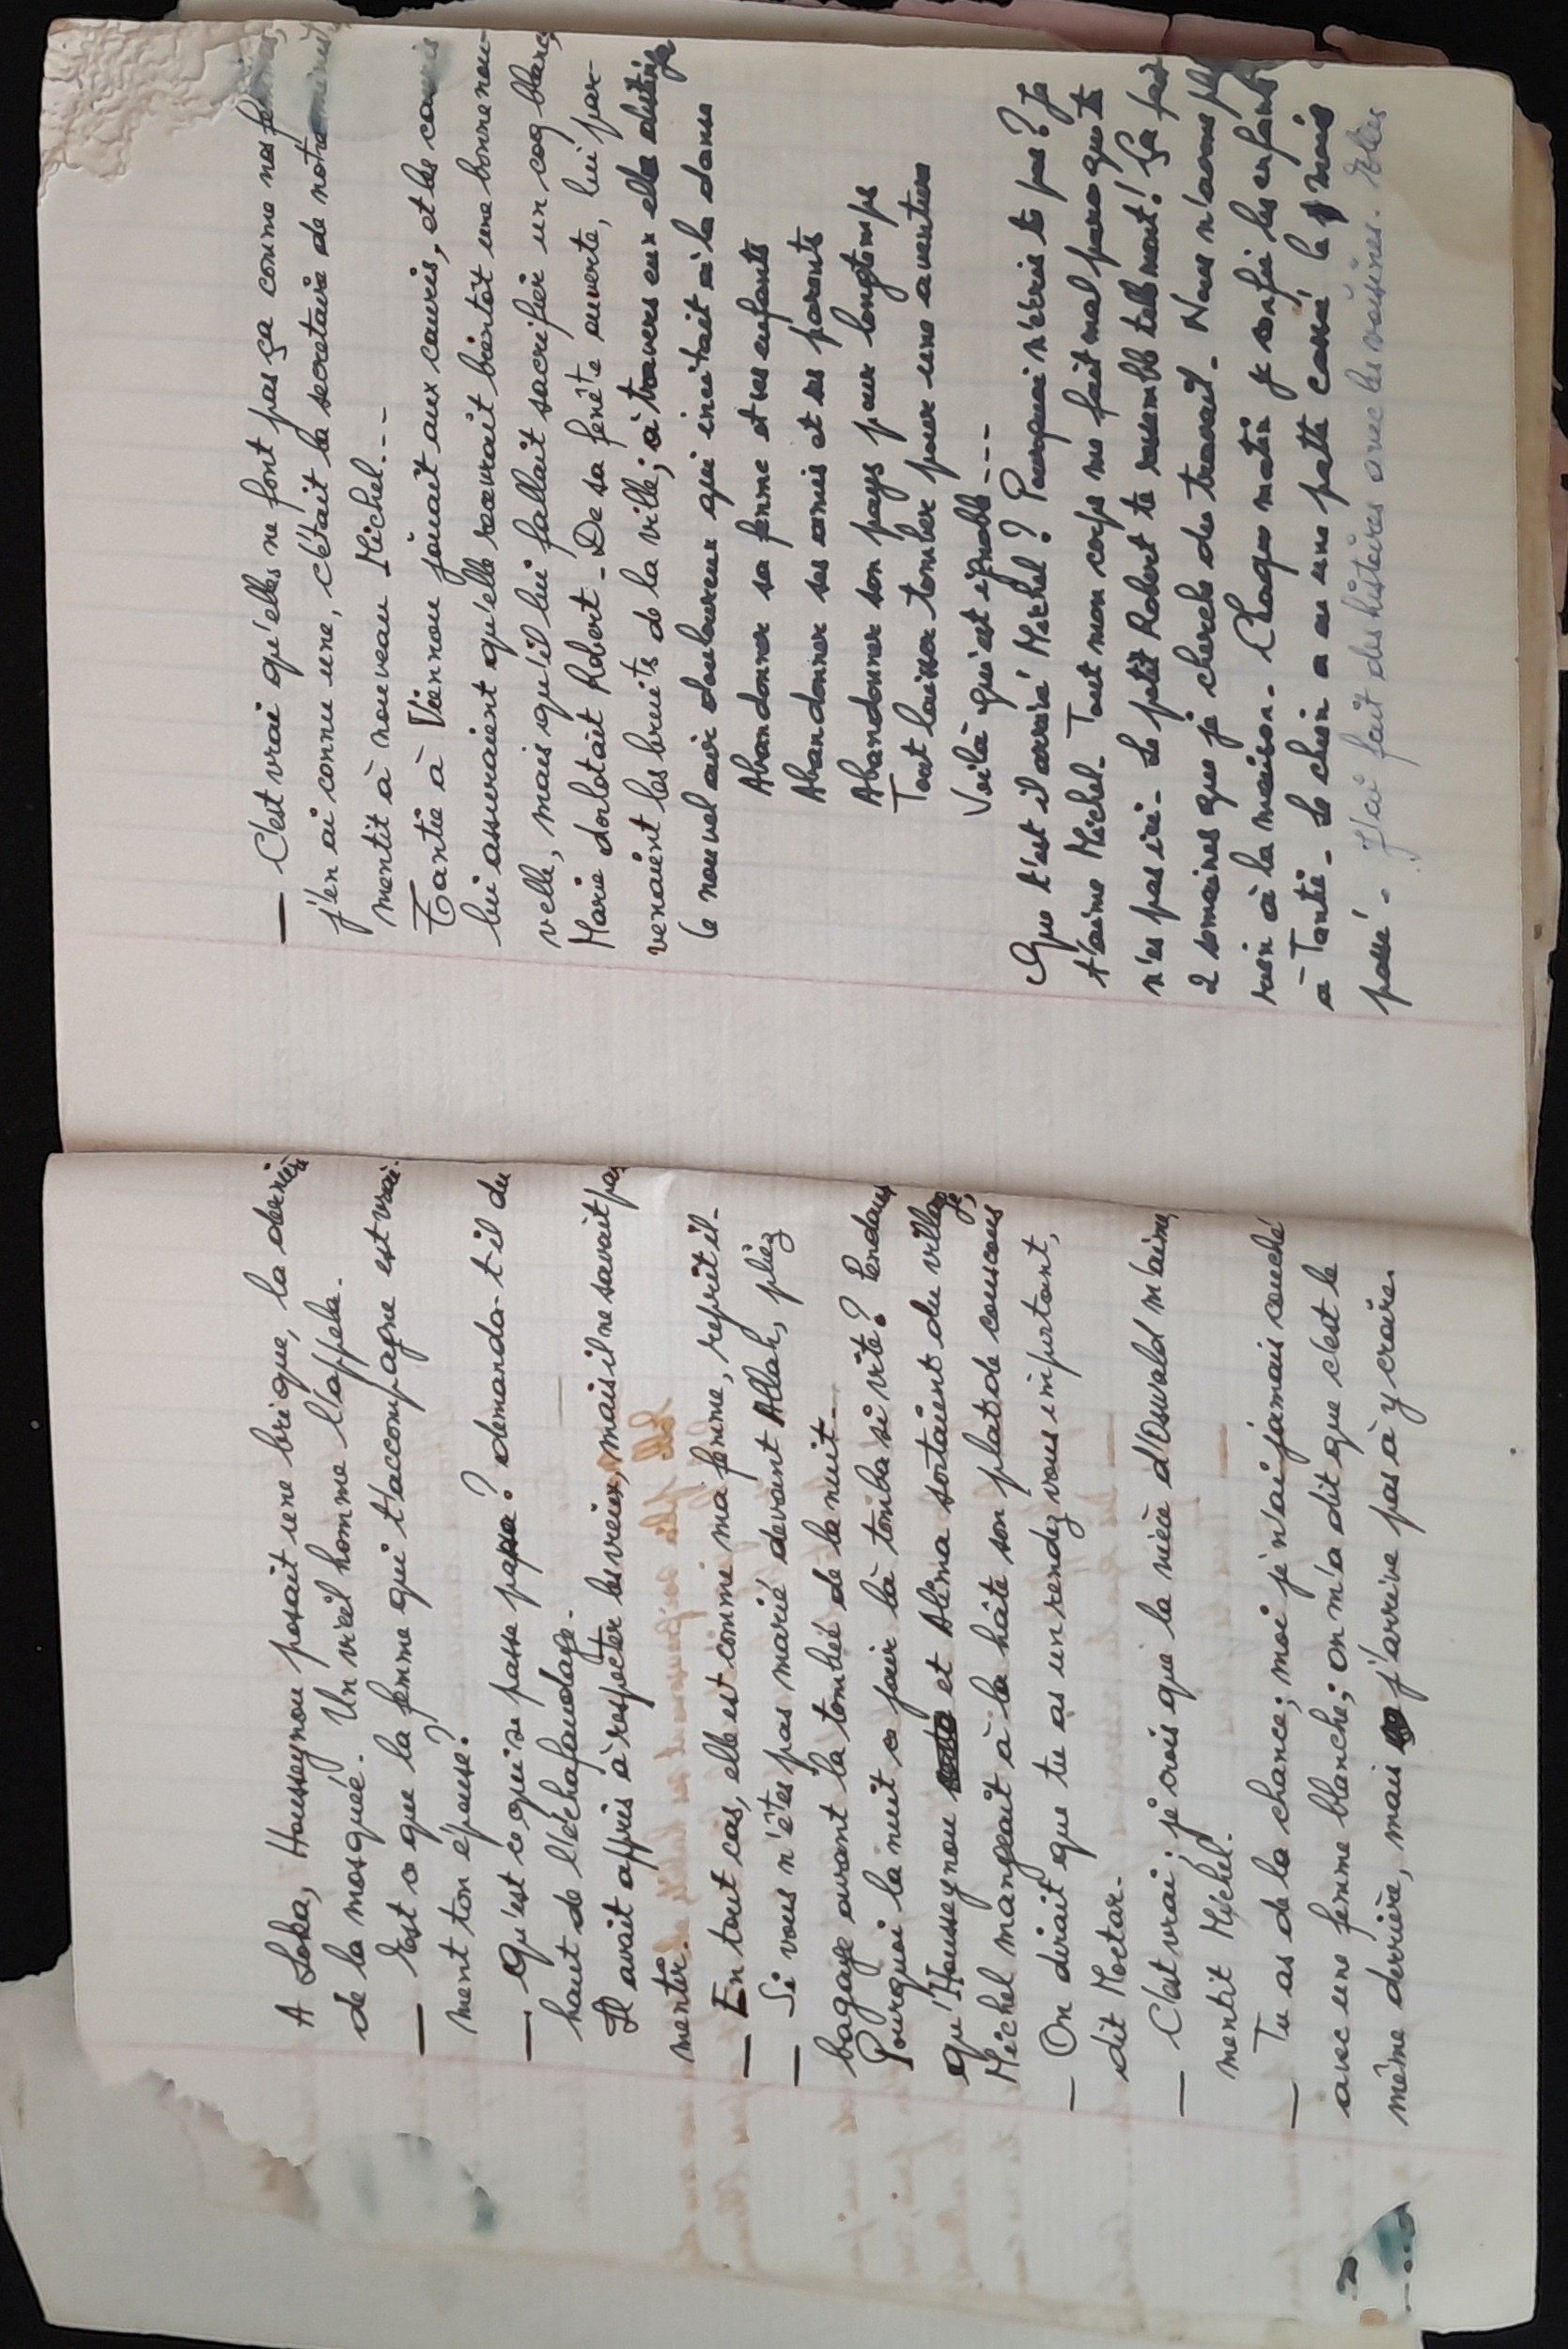 A Loka, Housseynou posait une brique, la dernière
de la mosquée. Un vieil homme l'appela.
— Est ce que la femme qui t'accompagne est vrai-
ment ton épouse?
— Qu'est ce qui se passe papa? demanda-t-il du
haut de l'échafaudage.
Il avait appris à respecter les vieux, mais il ne savait pas
mentir.
— En tout cas, elle est comme ma femme, reprit il-
— Si vous n'êtes pas marié devant Allah, pliez
bagage avant la tombée de la nuit-
Pourquoi la nuit ce jour là tomba si vite? Pendant
qu'Housseynou et Aléma sortaient du village,
Michel mangeait à la hâte son plat de couscous
— On dirait que tu as un rendez vous important,
dit Moctar-
— C'est vrai; je crois que la nièce d'Oswald m'aime,
mentit Michel.
— Tu as de la chance; moi je n'ai jamais couché
avec une femme blanche; on m'a dit que c'est le
même derrière, mais j'arrive pas à y croire.
— C'est vrai qu'elles ne font pas ça comme nos femmes,
j'en ai connu une, c'était la secretaire de notre
mentit à nouveau Michel...
Tantie à Viennou jouait aux cauris, et les cauris
lui assuraient qu'elle recevrait bientôt une bonne nou-
velle, mais qu'il lui fallait sacrifier un coq blanc,
Marie dorlotait Robert - De sa fenête ouverte, lui par-
venaient les bruits de la ville; à travers eux elle
le nouvel air douloureux qui incitait à la danse
Abandonner sa femme et ses enfants
Abandonner ses amis et ses parents
Abandonner son pays pour longtemps
Tout laisser tomber pour une aventure
Voilà qu'est ignoble...
Que t'est il arrivé Michel? Pourquoi n'écris tu pas? Je
t'aime Michel- Tout mon corps me fait mal parce que tu
n'es pas ici- Le petit Robert te ressemble tellement! Ça fait
2 semaines que je cherche du travail- Nous n'avons plus
rien à la maison- Chaque matin je confie les enfants
à Tantie- Le chien a eu une patte cassée le mois
passé- J'ai fait des histoires avec les voisines. Elles